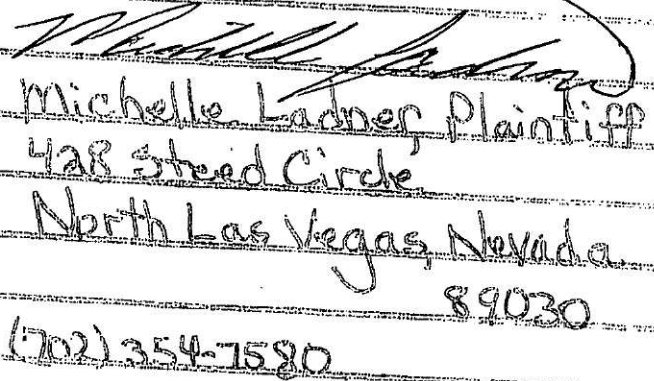 Michelle Ladner
Michelle Ladner, Plaintiff
428 Steed Circle
North Las Vegas, Nevada
89030
(702) 354-7580